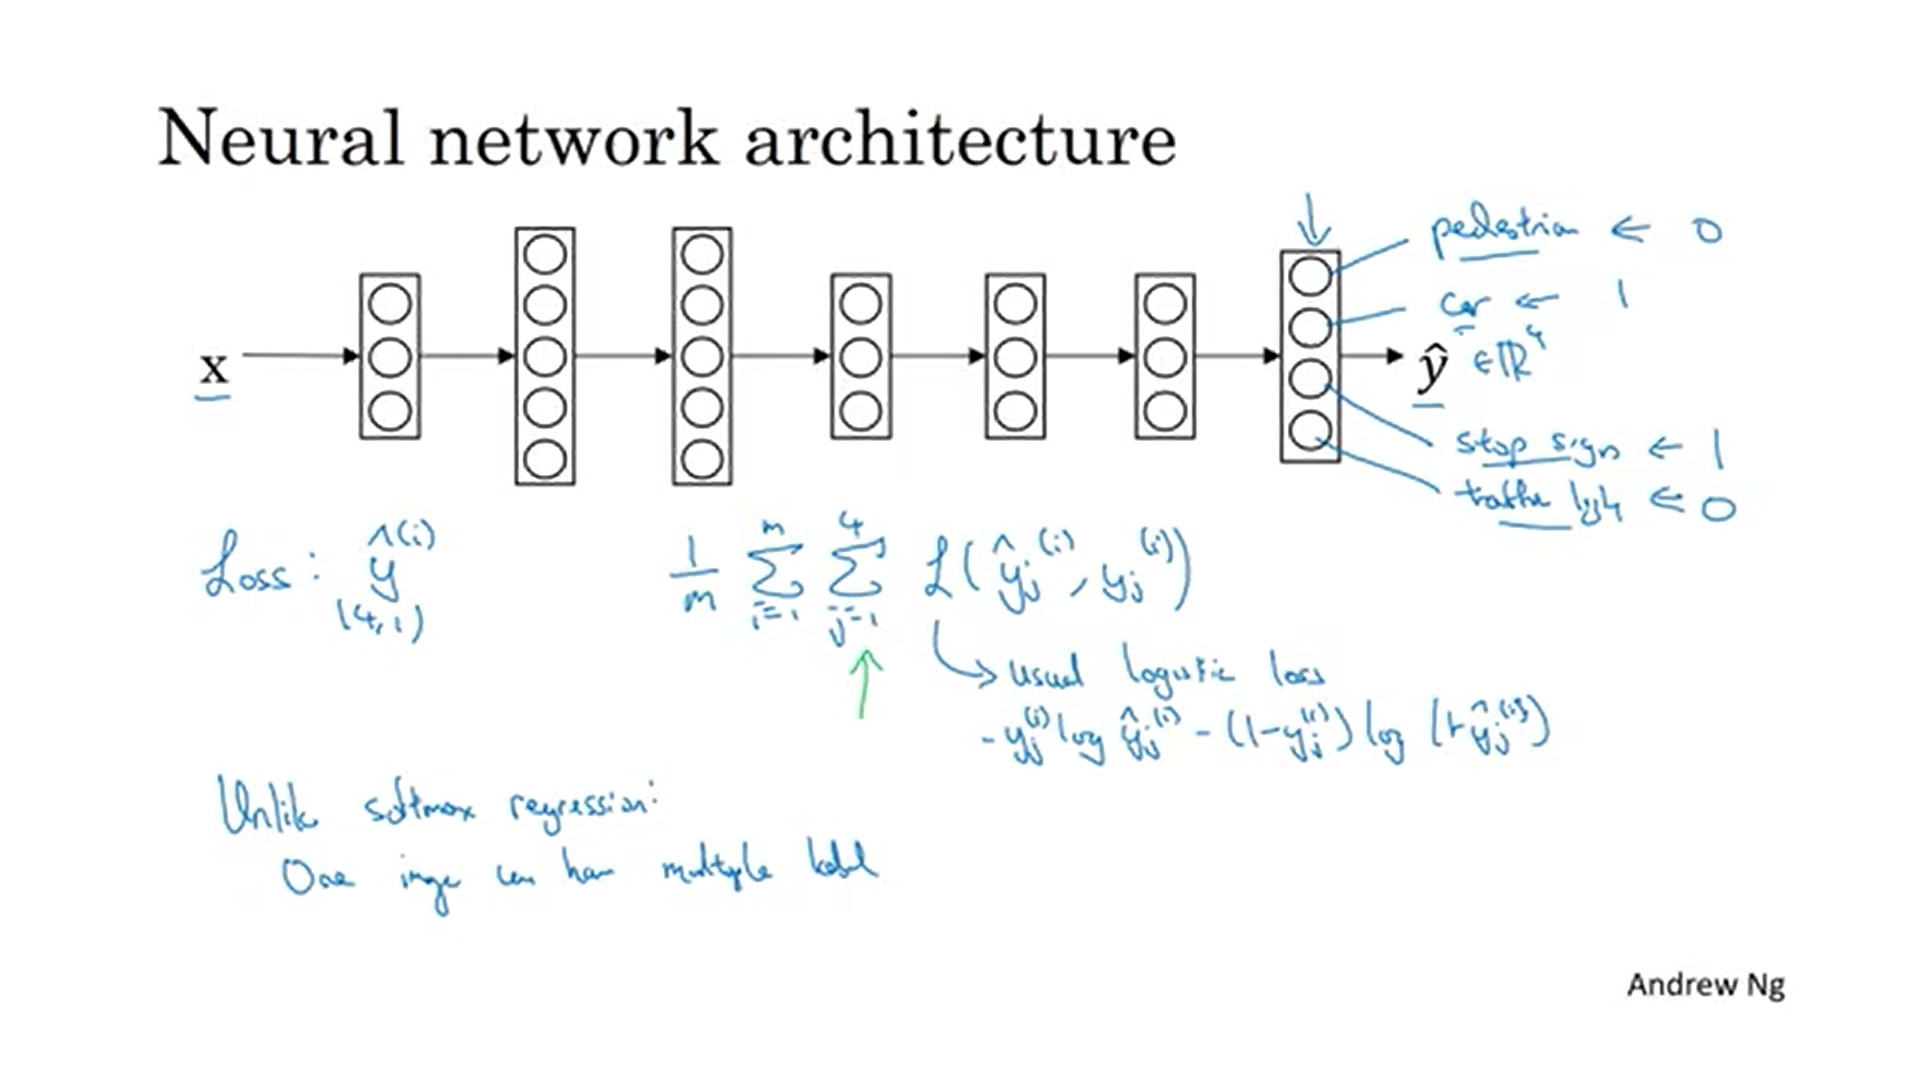 Neural network architecture
pedestrian ← 0
car ← 1
x
ŷ ∈ ℝ⁴
stop sign ← 1
traffic light ← 0
Loss: ŷ^(i) (4,1)
1/m Σ_{i=1}^{m} Σ_{j=1}^{4} ℒ(ŷ_j^(i), y_j^(i))
↳ usual logistic loss
- y_j^(i) log ŷ_j^(i) - (1-y_j^(i)) log (1-ŷ_j^(i))
Unlike softmax regression:
One image can have multiple label
Andrew Ng